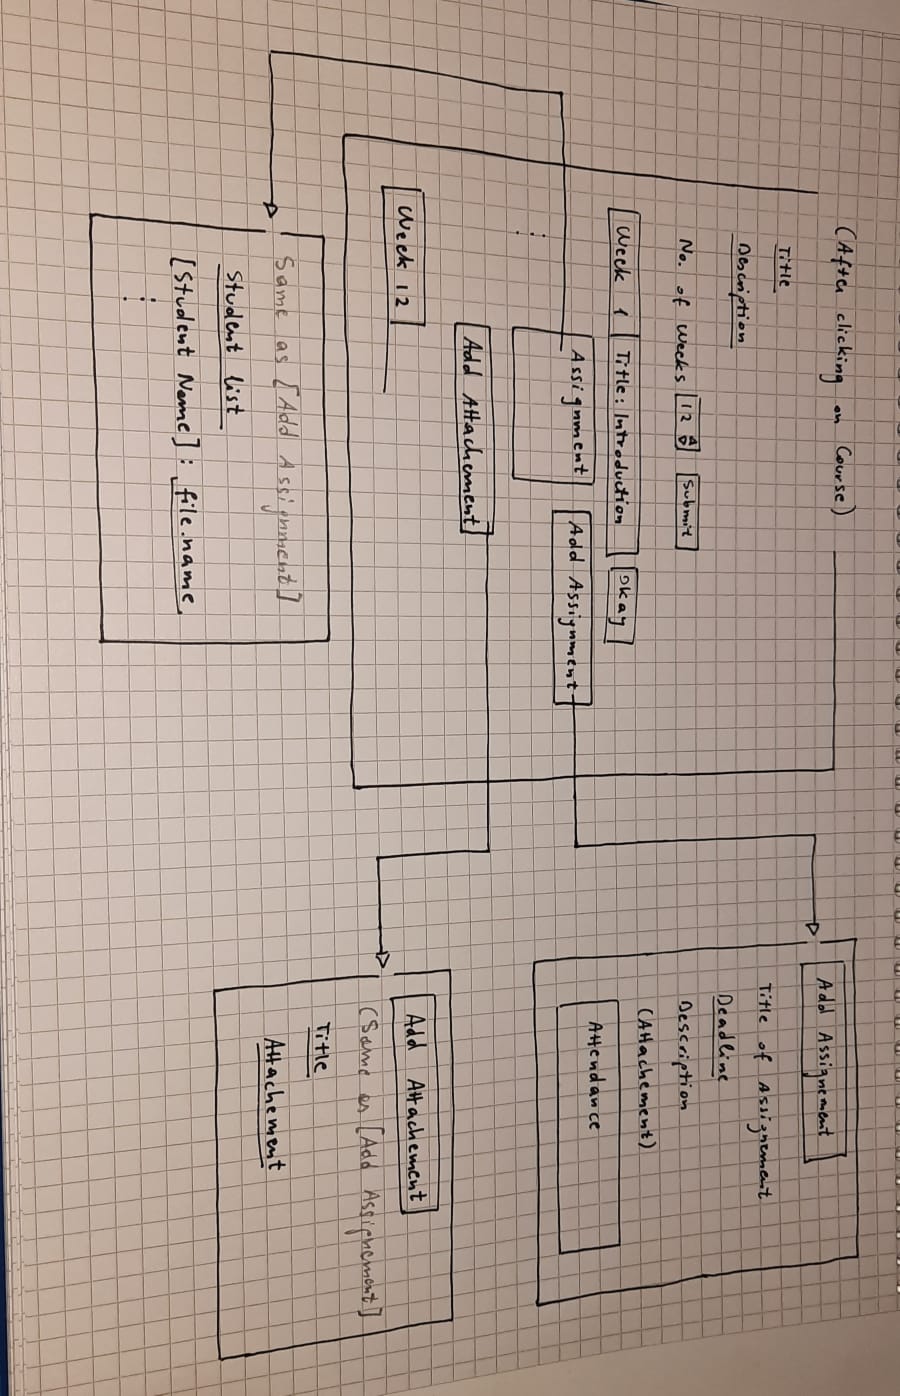 (After clicking on Course)
Title
Description
No. of weeks 12 Submit
Week 1 Title: Introduction Okay
Assignment Add Assignment
Add Attachement
Week 12
Add Assignement
Title of Assignement
Deadline
Description
(Attachement)
Attendance
Add Attachement
(Same as [Add Assignement]
Title
Attachement
Same as [Add Assignment]
Student list
[Student Name] : file.name